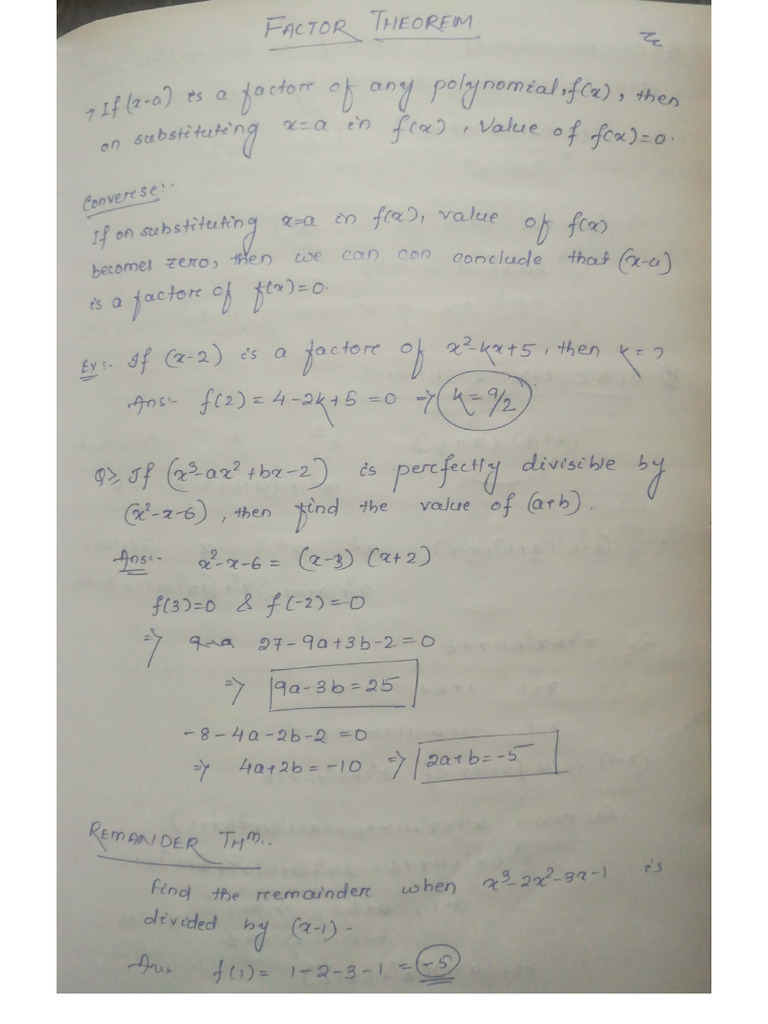 FACTOR THEOREM
→ If (x-a) is a factore of any polynomial, f(x), then
on substituting x=a in f(x), value of f(x)=0.
Converse:-
If on substituting x=a in f(x), value of f(x)
becomes zero, then we can con conclude that (x-a)
is a factore of f(x)=0.
Ex:- If (x-2) is a factore of x²-kx+5, then k=?
Ans:- f(2) = 4-2k+5 =0 ⇒ k=9/2
Q> If (x³-ax²+bx-2) is perfectly divisible by
(x²-x-6), then find the value of (a+b).
Ans:- x²-x-6 = (x-3) (x+2)
f(3)=0 & f(-2)=0
⇒ 27-9a+3b-2=0
⇒ 9a-3b=25
-8-4a-2b-2=0
⇒ 4a+2b=-10 ⇒ 2a+b=-5
REMANDER THM:.
Find the remainder when x³-2x²-3x-1 is
divided by (x-1)-
Ans. f(1)= 1-2-3-1 = -5